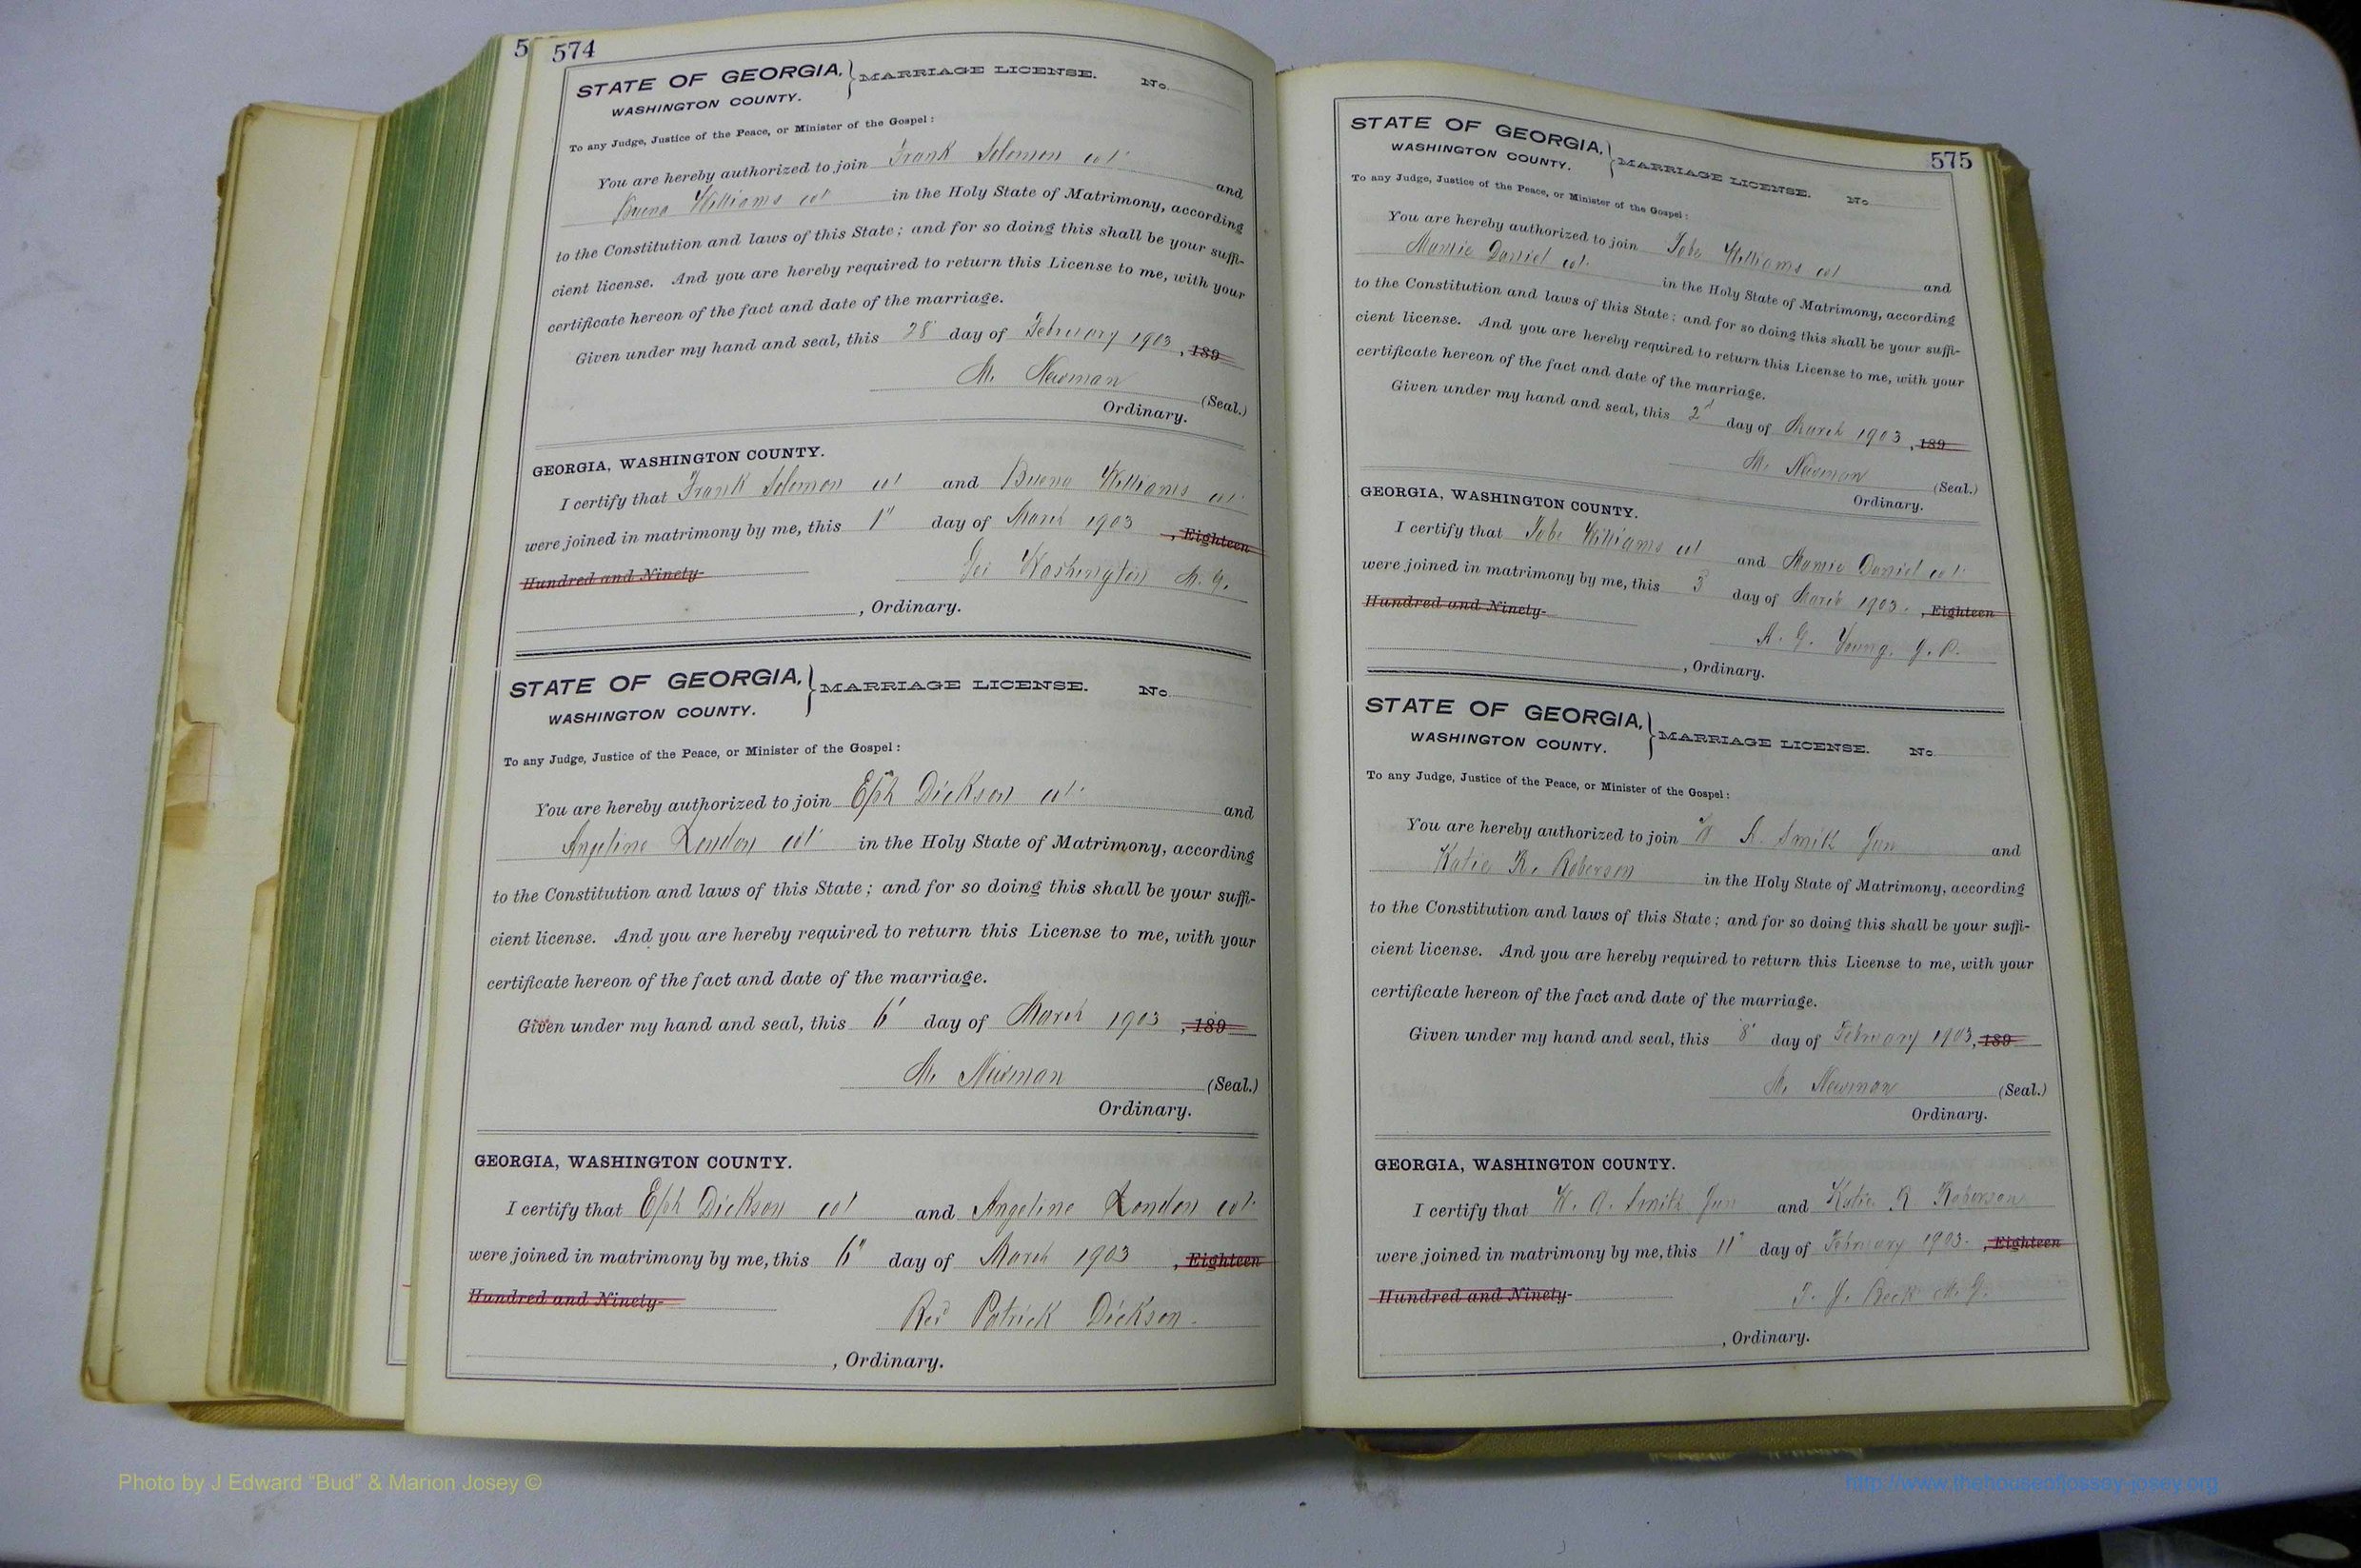 5
574
STATE OF GEORGIA, } MARRIAGE LICENSE. No.
WASHINGTON COUNTY.
To any Judge, Justice of the Peace, or Minister of the Gospel:
You are hereby authorized to join Frank Solomon col and
Buena Williams col in the Holy State of Matrimony, according
to the Constitution and laws of this State; and for so doing this shall be your suffi-
cient license. And you are hereby required to return this License to me, with your
certificate hereon of the fact and date of the marriage.
Given under my hand and seal, this 28 day of February 1903, 189
M. Newman (Seal.)
Ordinary.
GEORGIA, WASHINGTON COUNTY.
I certify that Frank Solomon col and Buena Williams col
were joined in matrimony by me, this 1" day of March 1903, Eighteen
Hundred and Ninety-
Geo Washington M. G.
, Ordinary.
STATE OF GEORGIA, } MARRIAGE LICENSE. No.
WASHINGTON COUNTY.
To any Judge, Justice of the Peace, or Minister of the Gospel:
You are hereby authorized to join Eph Dickson col and
Angeline London col in the Holy State of Matrimony, according
to the Constitution and laws of this State; and for so doing this shall be your suffi-
cient license. And you are hereby required to return this License to me, with your
certificate hereon of the fact and date of the marriage.
Given under my hand and seal, this 6' day of March 1903, 189
M. Newman (Seal.)
Ordinary.
GEORGIA, WASHINGTON COUNTY.
I certify that Eph Dickson col and Angeline London col
were joined in matrimony by me, this 6" day of March 1903, Eighteen
Hundred and Ninety-
Rev Patrick Dickson.
, Ordinary.
575
STATE OF GEORGIA, } MARRIAGE LICENSE. No.
WASHINGTON COUNTY.
To any Judge, Justice of the Peace, or Minister of the Gospel:
You are hereby authorized to join Tobe Williams col and
Mamie Daniel col in the Holy State of Matrimony, according
to the Constitution and laws of this State; and for so doing this shall be your suffi-
cient license. And you are hereby required to return this License to me, with your
certificate hereon of the fact and date of the marriage.
Given under my hand and seal, this 2' day of March 1903, 189
M. Newman (Seal.)
Ordinary.
GEORGIA, WASHINGTON COUNTY.
I certify that Tobe Williams col and Mamie Daniel col
were joined in matrimony by me, this 3 day of March 1903., Eighteen
Hundred and Ninety-
G. Young. J. P.
, Ordinary.
STATE OF GEORGIA, } MARRIAGE LICENSE. No.
WASHINGTON COUNTY.
To any Judge, Justice of the Peace, or Minister of the Gospel:
You are hereby authorized to join W A. Smith Jun and
Katie R. Roberson in the Holy State of Matrimony, according
to the Constitution and laws of this State; and for so doing this shall be your suffi-
cient license. And you are hereby required to return this License to me, with your
certificate hereon of the fact and date of the marriage.
Given under my hand and seal, this 8' day of February 1903, 189
M. Newman (Seal.)
Ordinary.
GEORGIA, WASHINGTON COUNTY.
I certify that W. A. Smith Jun and Katie R Roberson
were joined in matrimony by me, this 11" day of February 1903., Eighteen
Hundred and Ninety-
T. J. Beck M. G.
, Ordinary.
Photo by J Edward “Bud” & Marion Josey ©
http://www.thehouseofjossey-josey.org